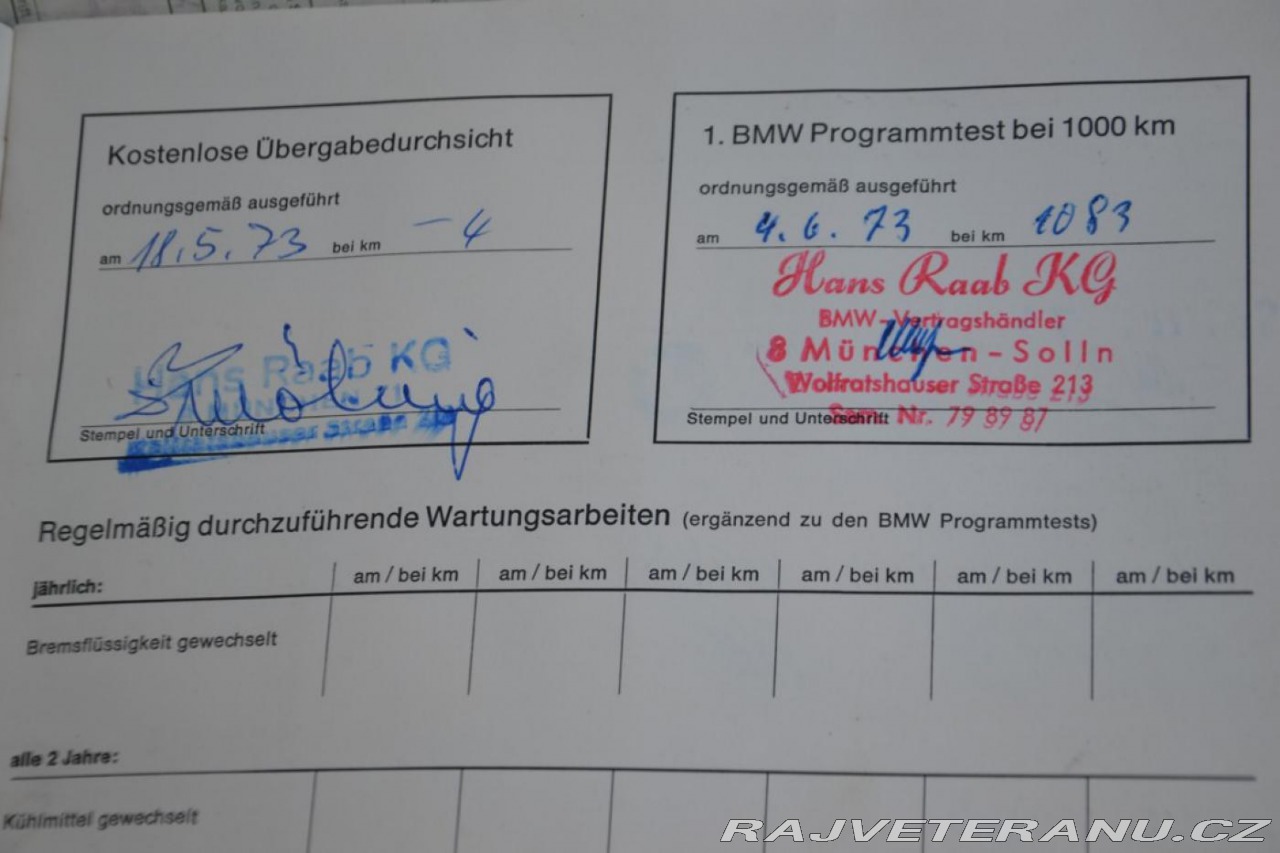 Kostenlose Übergabedurchsicht
ordnungsgemäß ausgeführt
am 18.5.73 bei km -4
Hans Raab KG
Stempel und Unterschrift
1. BMW Programmtest bei 1000 km
ordnungsgemäß ausgeführt
am 4.6.73 bei km 1083
Hans Raab KG
BMW-Vertragshändler
8 München-Solln
Wolfratshauser Straße 213
Stempel und Unterschrift
Nr. 79 89 87
Regelmäßig durchzuführende Wartungsarbeiten (ergänzend zu den BMW Programmtests)
jährlich: am / bei km am / bei km am / bei km am / bei km am / bei km am / bei km
Bremsflüssigkeit gewechselt
alle 2 Jahre:
Kühlmittel gewechselt
RAJVETERANU.CZ